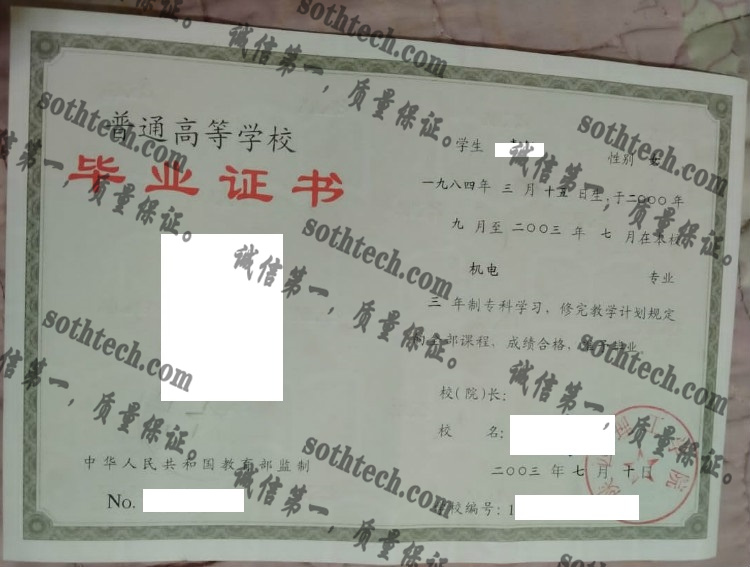 普通高等学校
毕业证书
中华人民共和国教育部监制
No.
学生 性别 女
一九八四年 三 月 十五 日生，于二〇〇〇年
九 月至 二〇〇三 年 七 月在本校
机电 专业
三 年制专科学习，修完教学计划规定
的全部课程，成绩合格，准予毕业。
校(院)长：
校 名：
二〇〇三 年 七 月 十日
学校编号：1
sothtech.com
诚信第一，质量保证。
sothtech.com
诚信第一，质量保证。
sothtech.com
诚信第一，质量保证。
sothtech.com
诚信第一，质量保证。
sothtech.com
诚信第一，质量保证。
sothtech.com
诚信第一，质量保证。
sothtech.com
诚信第一，质量保证。
sothtech.com